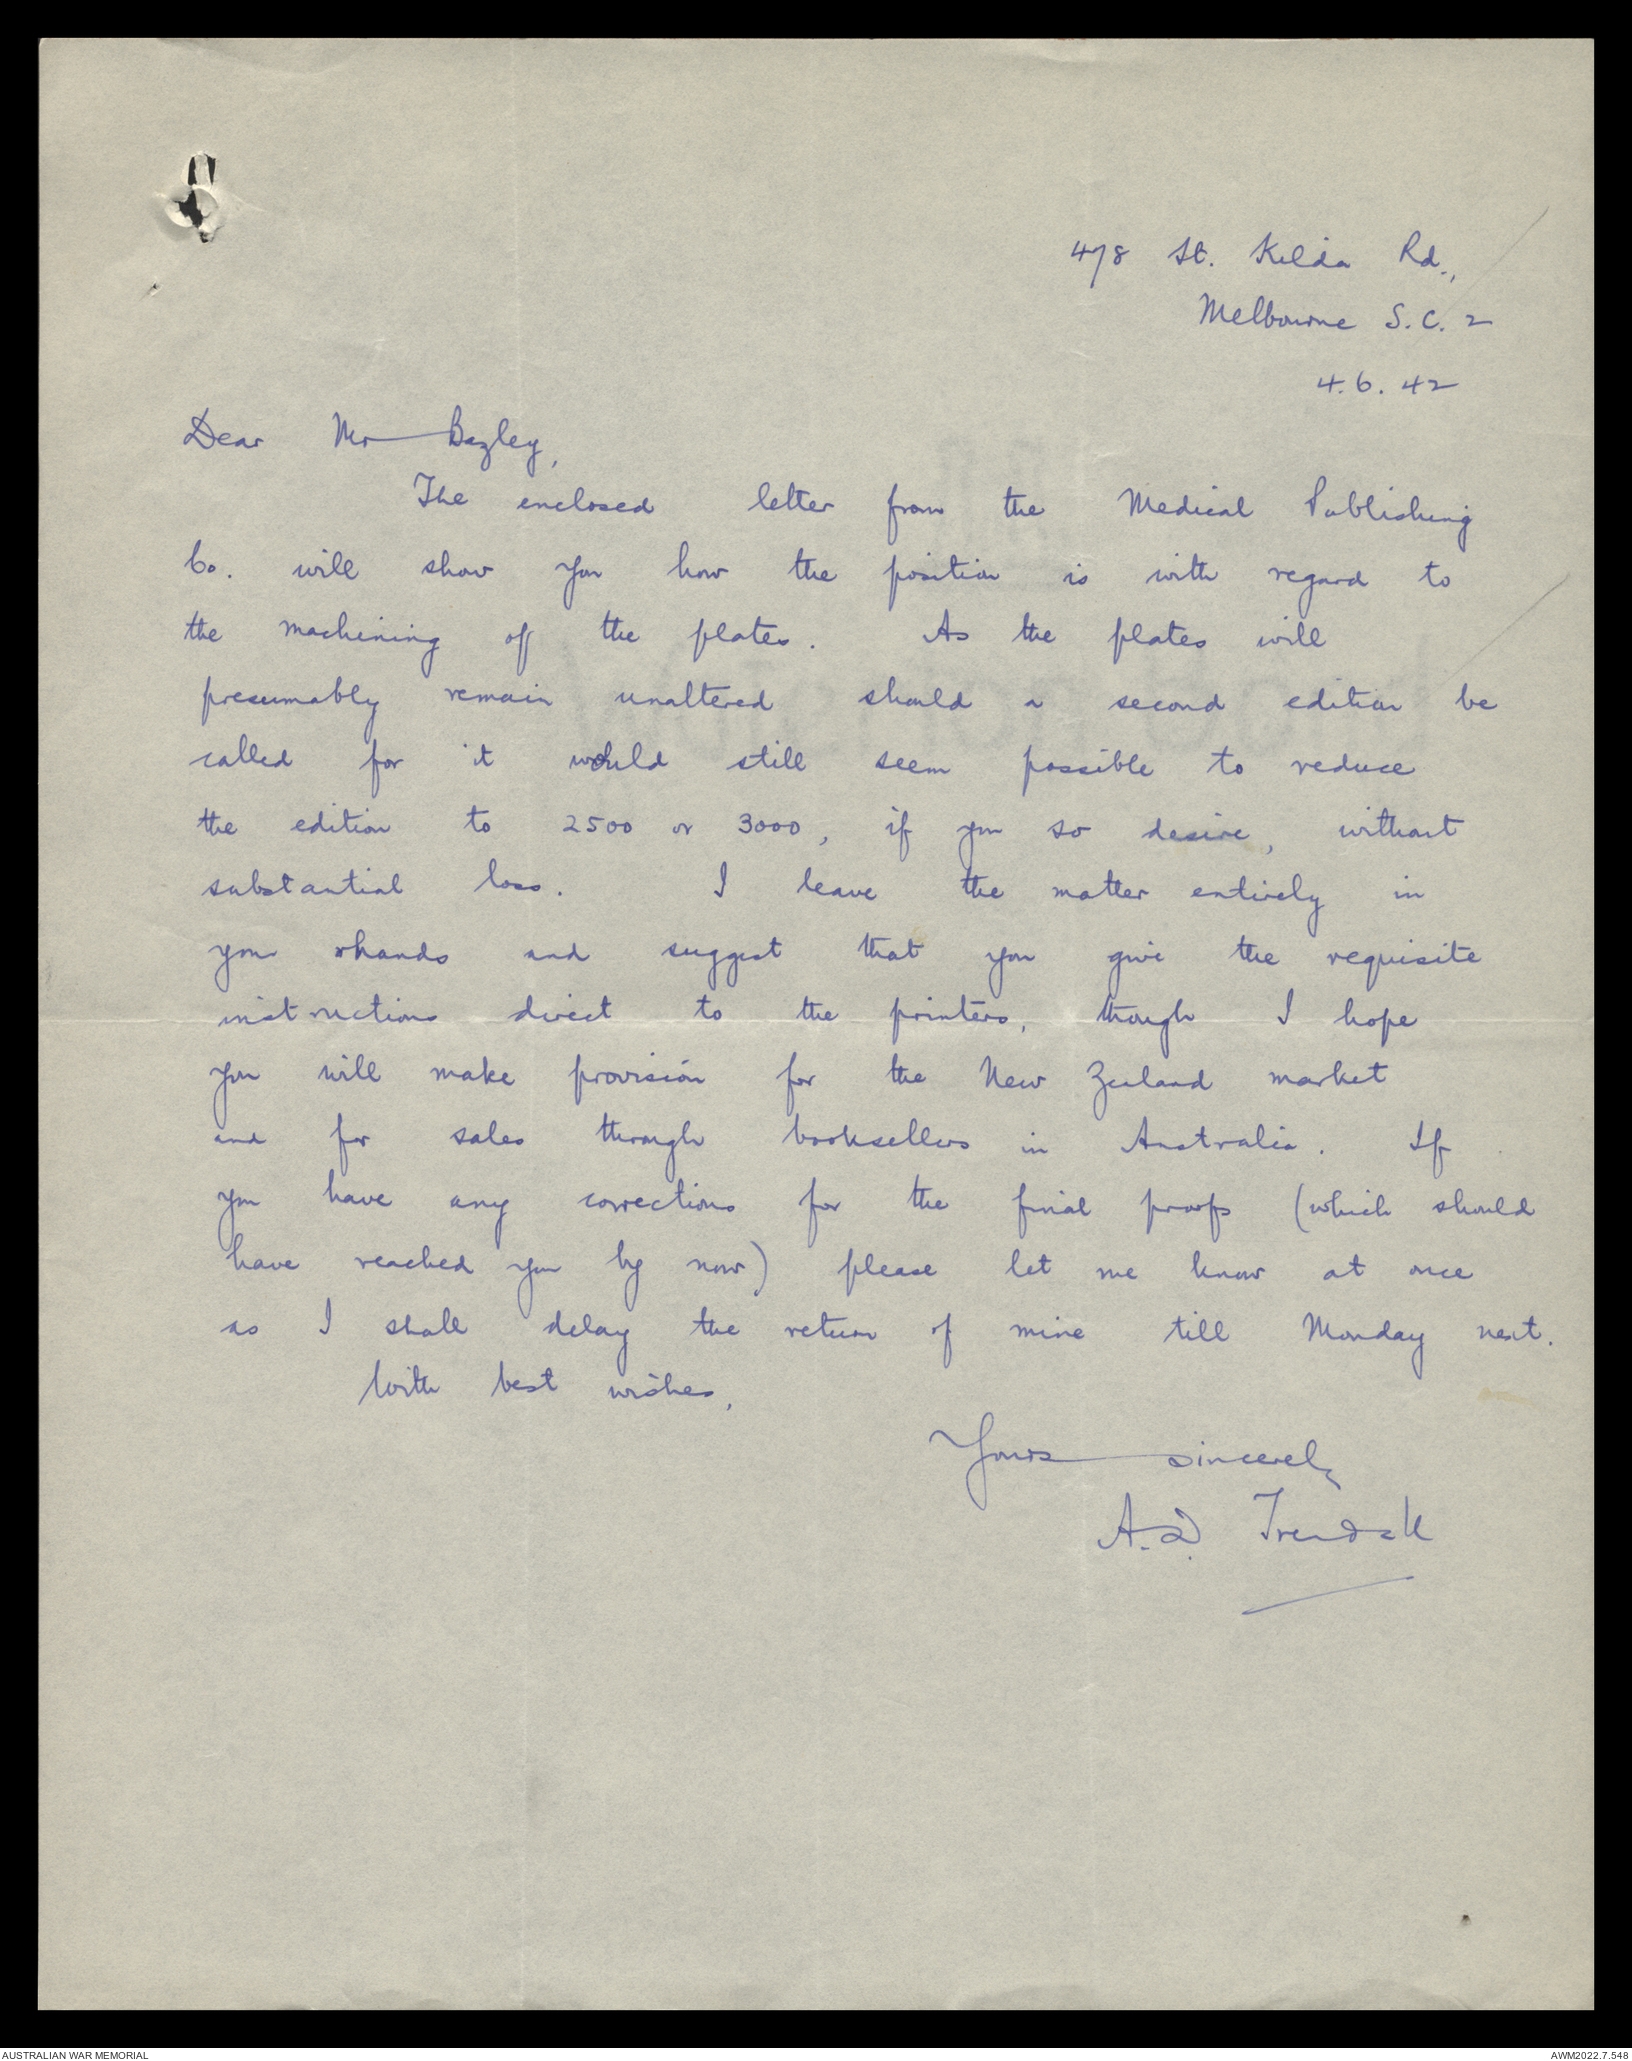 478 St. Kilda Rd.,
Melbourne S.C. 2
4.6.42
Dear Mr Bazley,
The enclosed letter from the Medical Publishing
Co. will show you how the position is with regard to
the machining of the plates. As the plates will
presumably remain unaltered should a second edition be
called for it would still seem possible to reduce
the edition to 2500 or 3000, if you so desire, without
substantial loss. I leave the matter entirely in
your hands and suggest that you give the requisite
instructions direct to the printers, though I hope
you will make provision for the New Zealand market
and for sales through booksellers in Australia. If
you have any corrections for the final proofs (which should
have reached you by now) please let me know at once
as I shall delay the return of mine till Monday next.
With best wishes,
Yours sincerely
A.D. Trendall
AUSTRALIAN WAR MEMORIAL
AWM2022.7.548